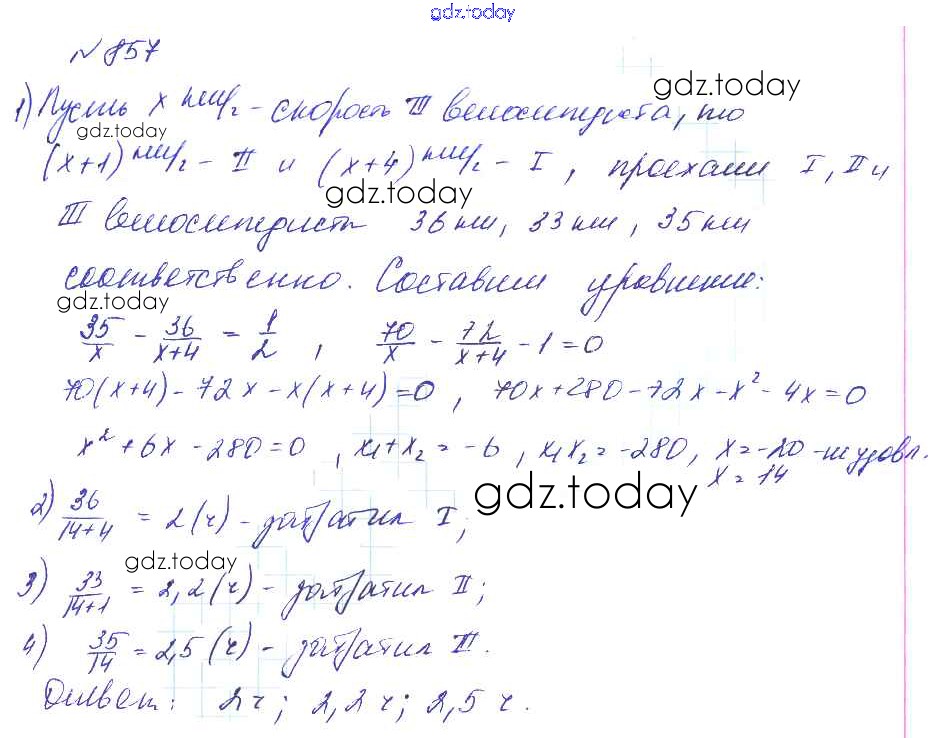 gdz.today
№ 857
gdz.today
1) Пусть x км/ч - скорость III велосипедиста, то
gdz.today
(x+1) км/ч - II и (x+4) км/ч - I, проехали I, II и
gdz.today
III велосипедисты 36 км, 33 км, 35 км
соответственно. Составим уравнение:
gdz.today
35/x - 36/(x+4) = 1/2, 70/x - 72/(x+4) - 1 = 0
70(x+4) - 72x - x(x+4) = 0, 70x + 280 - 72x - x² - 4x = 0
x² + 6x - 280 = 0, x₁ + x₂ = -6, x₁x₂ = -280, x = -20 - не удовл.
x = 14
gdz.today
2) 36/(14+4) = 2 (ч) - затратил I;
gdz.today
3) 33/(14+1) = 2,2 (ч) - затратил II;
4) 35/14 = 2,5 (ч) - затратил III.
Ответ: 2 ч; 2,2 ч; 2,5 ч.